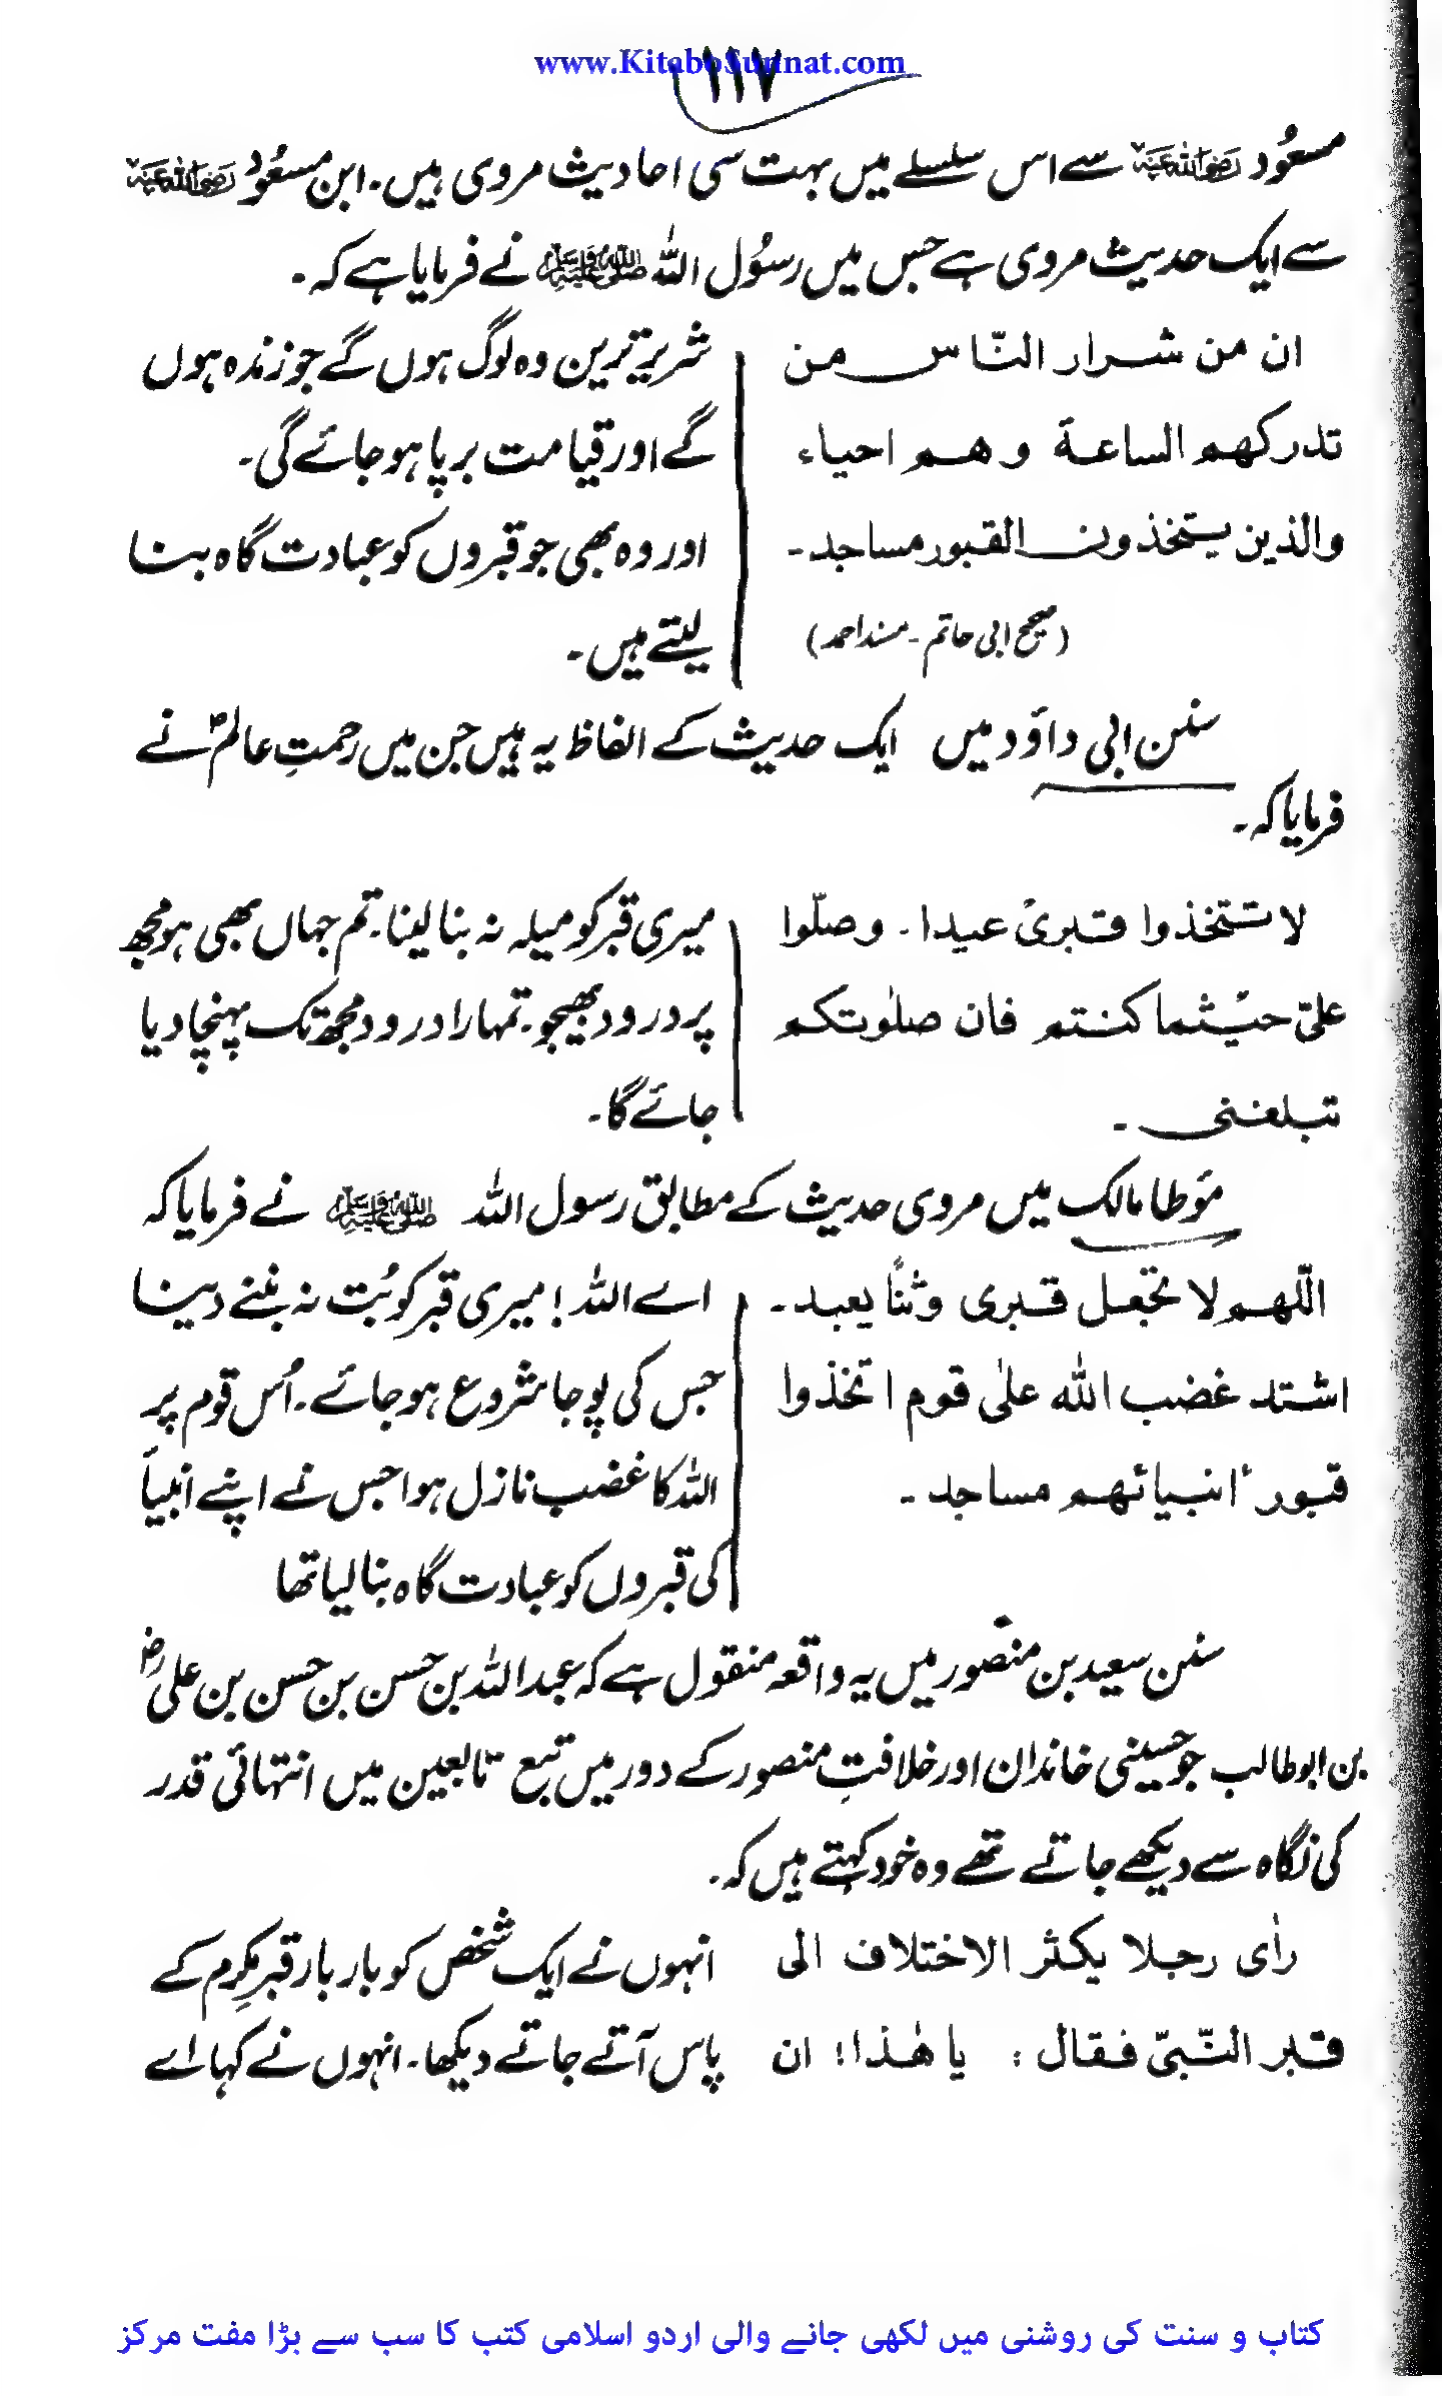 www.KitaboSunnat.com
۱۱۷
مسعُود رضی اللہ عنہ سے اس سلسلے میں بہت سی احادیث مروی ہیں۔ ابن مسعُود رضی اللہ عنہ
سے ایک حدیث مروی ہے جس میں رسُول اللہ صلی اللہ علیہ وسلم نے فرمایا ہے کہ۔
ان من شرار النّاس من
تدركهم الساعة وهم احياء
والذين يتخذون القبور مساجد۔
(صحیح ابی حاتم۔ مسند احمد)
شریر ترین وہ لوگ ہوں گے جو زندہ ہوں
گے اور قیامت برپا ہو جائے گی۔
اور وہ بھی جو قبروں کو عبادت گاہ بنا
لیتے ہیں۔
سنن ابی داؤد میں ایک حدیث کے الفاظ یہ ہیں جن میں رحمتِ عالمؐ نے
فرمایا کہ۔
لا تتخذوا قبری عیدا۔ وصلّوا
علیّ حیثما کنتم فان صلٰوتکم
تبلغنی۔
میری قبر کو میلہ نہ بنا لینا۔ تم جہاں بھی ہو مجھ
پر درود بھیجو۔ تمہارا درود مجھ تک پہنچا دیا
جائے گا۔
مؤطا مالک میں مروی حدیث کے مطابق رسول اللہ صلی اللہ علیہ وسلم نے فرمایا کہ
اللّٰهم لا تجعل قبری وثناً یعبد۔
اشتد غضب الله علیٰ قوم اتخذوا
قبور انبیائهم مساجد۔
اے اللہ! میری قبر کو بُت نہ بننے دینا
جس کی پوجا شروع ہو جائے۔ اُس قوم پر
اللہ کا غضب نازل ہوا جس نے اپنے انبیاؑ
کی قبروں کو عبادت گاہ بنا لیا تھا
سنن سعید بن منصور میں یہ واقعہ منقول ہے کہ عبداللہ بن حسن بن حسن بن علیؓ
بن ابوطالب جو حسینی خاندان اور خلافتِ منصور کے دور میں تبع تابعین میں انتہائی قدر
کی نگاہ سے دیکھے جاتے تھے وہ خود کہتے ہیں کہ۔
رأی رجلا یکثر الاختلاف الی
قبر النّبیّ فقال : یا هٰذا! ان
انہوں نے ایک شخص کو بار بار قبرِ مکرم کے
پاس آتے جاتے دیکھا۔ انہوں نے کہا اے
کتاب و سنت کی روشنی میں لکھی جانے والی اردو اسلامی کتب کا سب سے بڑا مفت مرکز